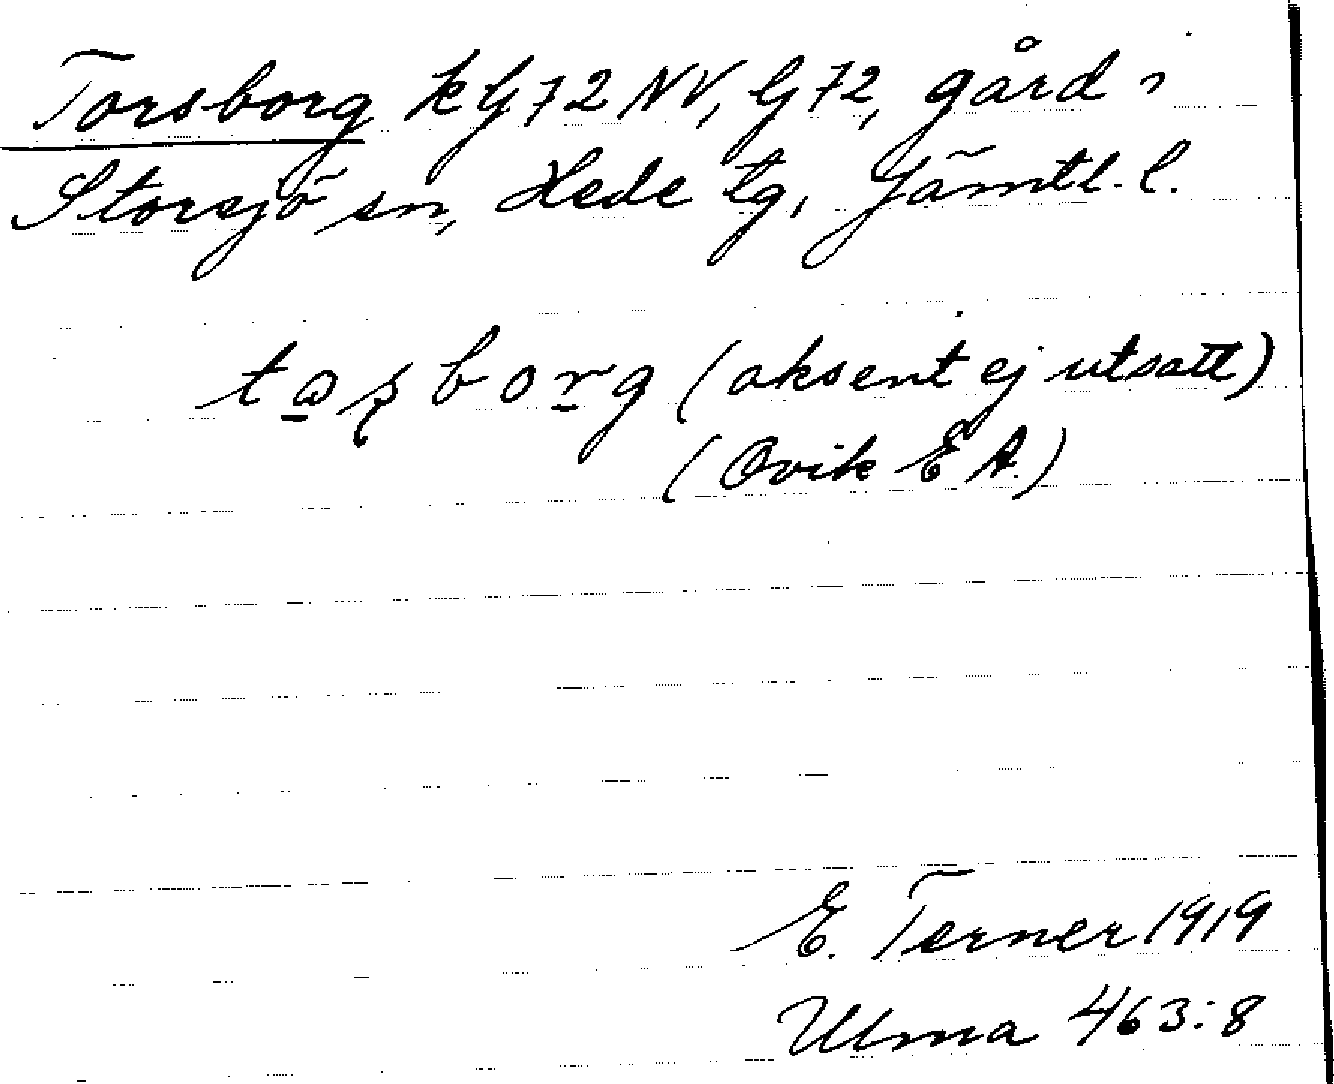 Torsborg k G 72 NV, G 72, gård i
Storsjö sn, Hede tg, Jämtl. l.
taʂborg (aksent ej utsatt)
(Ovik E A.)
E. Terner 1919
Ulma 463:8